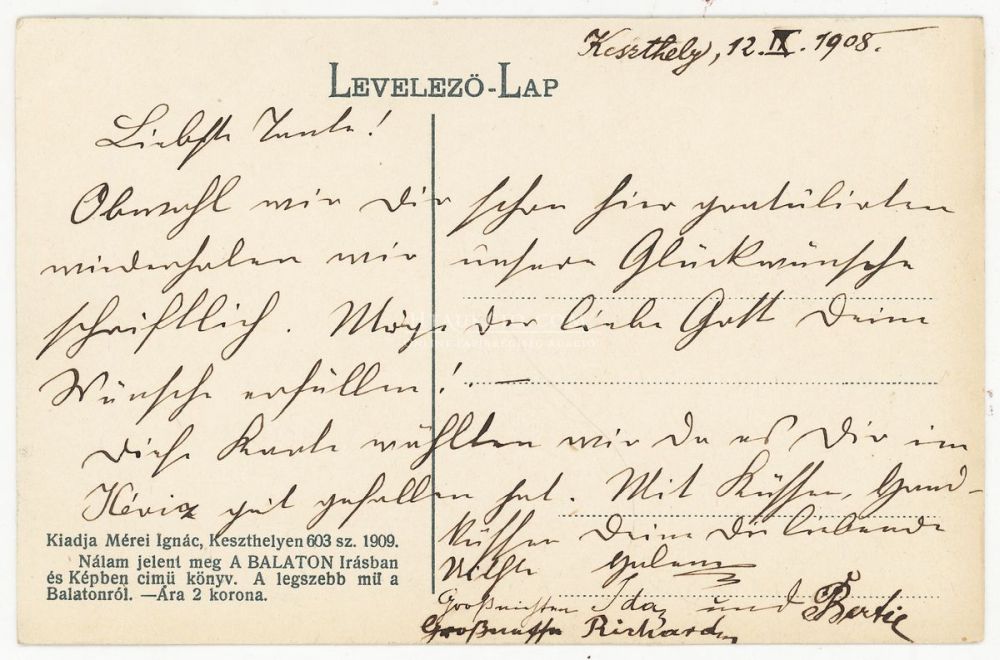 Keszthely, 12. IX. 1908.
LEVELEZŐ-LAP
Liebste Tante!
Obwohl wir Dir schon hier gratülirten
wiederholen wir unsere Glückwünsche
schriftlich. Möge der liebe Gott Deine
Wünsche erfüllen! —
Diese Karte wählten wir da es Dir im
Héviz gut gefallen hat. Mit Küssen, Hand-
küssen Deine Dich liebende
Nichte
Großnichten Ida und Bertie
Großneffe Richard
Kiadja Mérei Ignác, Keszthelyen 603 sz. 1909.
Nálam jelent meg A BALATON Irásban
és Képben cimü könyv. A legszebb mü a
Balatonról. —Ára 2 korona.